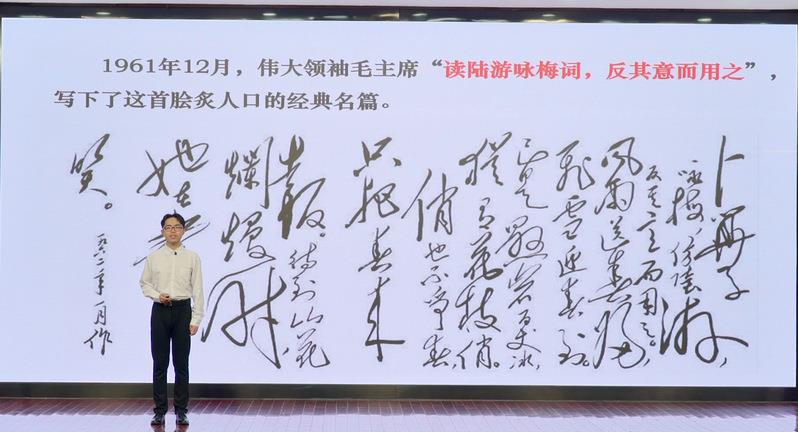 1961年12月，伟大领袖毛主席“读陆游咏梅词，反其意而用之”，
写下了这首脍炙人口的经典名篇。
卜算子
咏梅，仿陆游，
反其意而用之。
风雨送春归，
飞雪迎春到。
已是悬崖百丈冰，
犹有花枝俏。
俏也不争春，
只把春来
報。待到山花
爛熳時
她在
笑。
一九六二年一月作